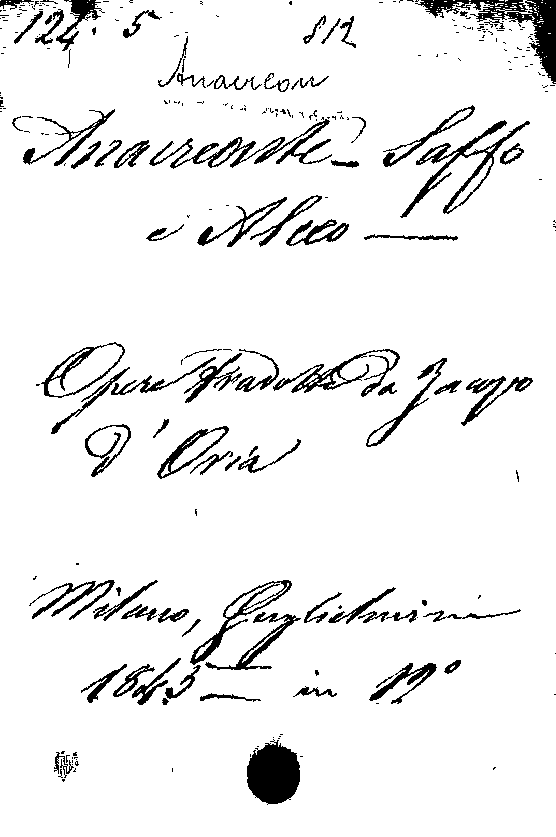 124. 5 812
Anacreon
Anacreonte - Saffo
e Alceo —
Opere tradotte da Jacopo
D'Oria
Milano, Guglielmini
1845 — in 12°